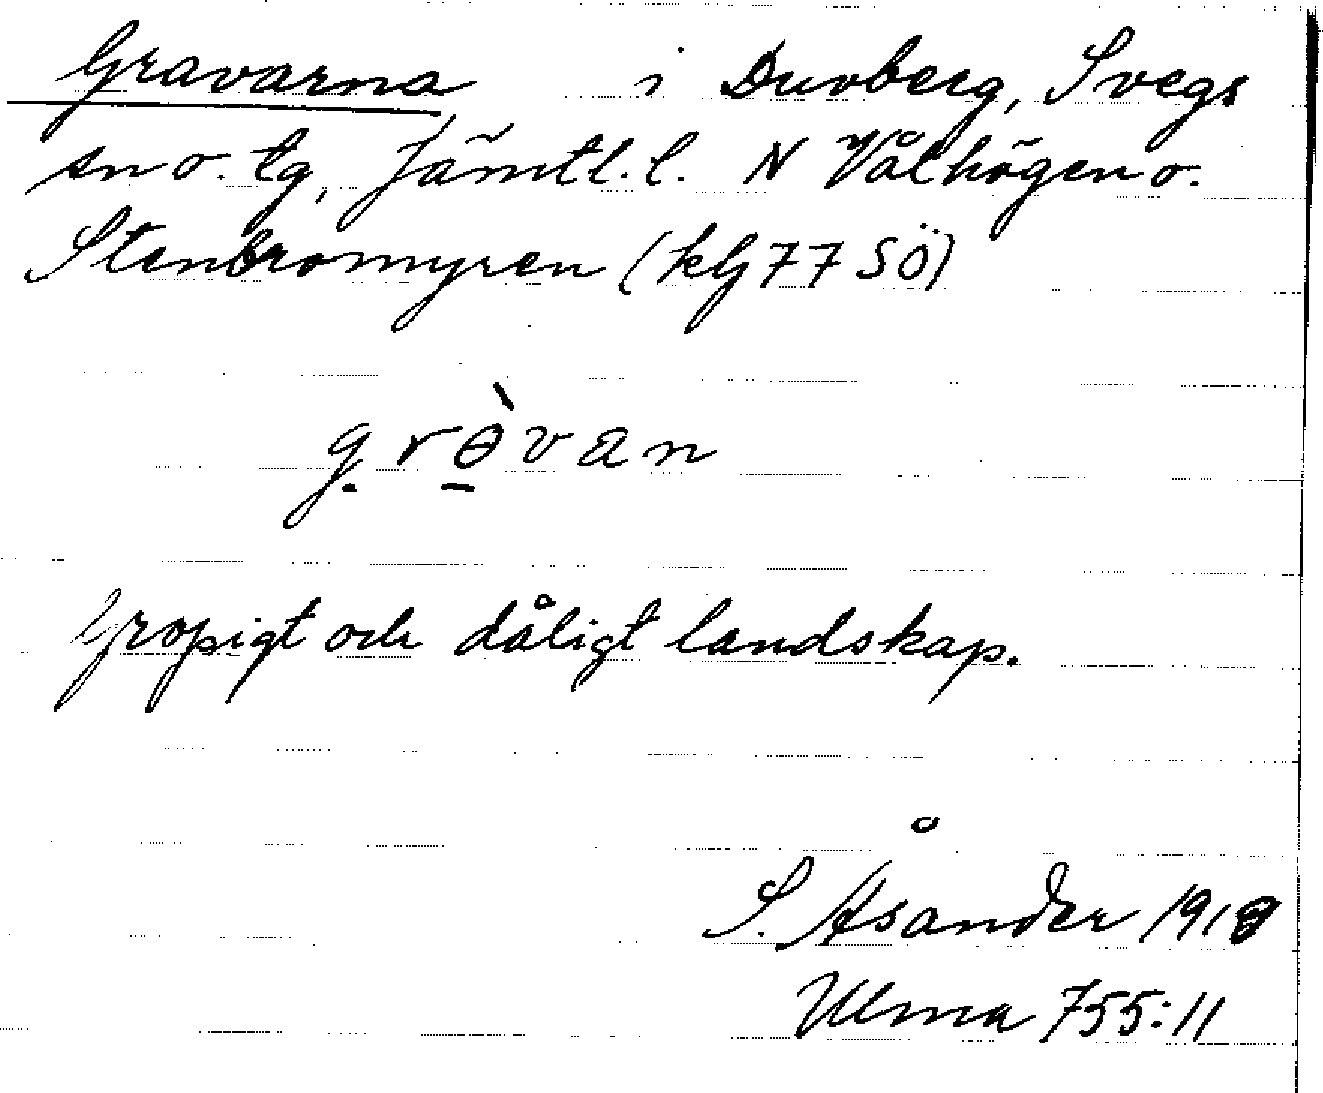 Gravarna i Duvberg, Svegs
sn o. tg, Jämtl. l. N Vålhögen o.
Stenbromyren (kbj 77 SÖ)
grɵ̀van
Gropigt och dåligt landskap.
S. Åsander 1918
Ulma 755:11